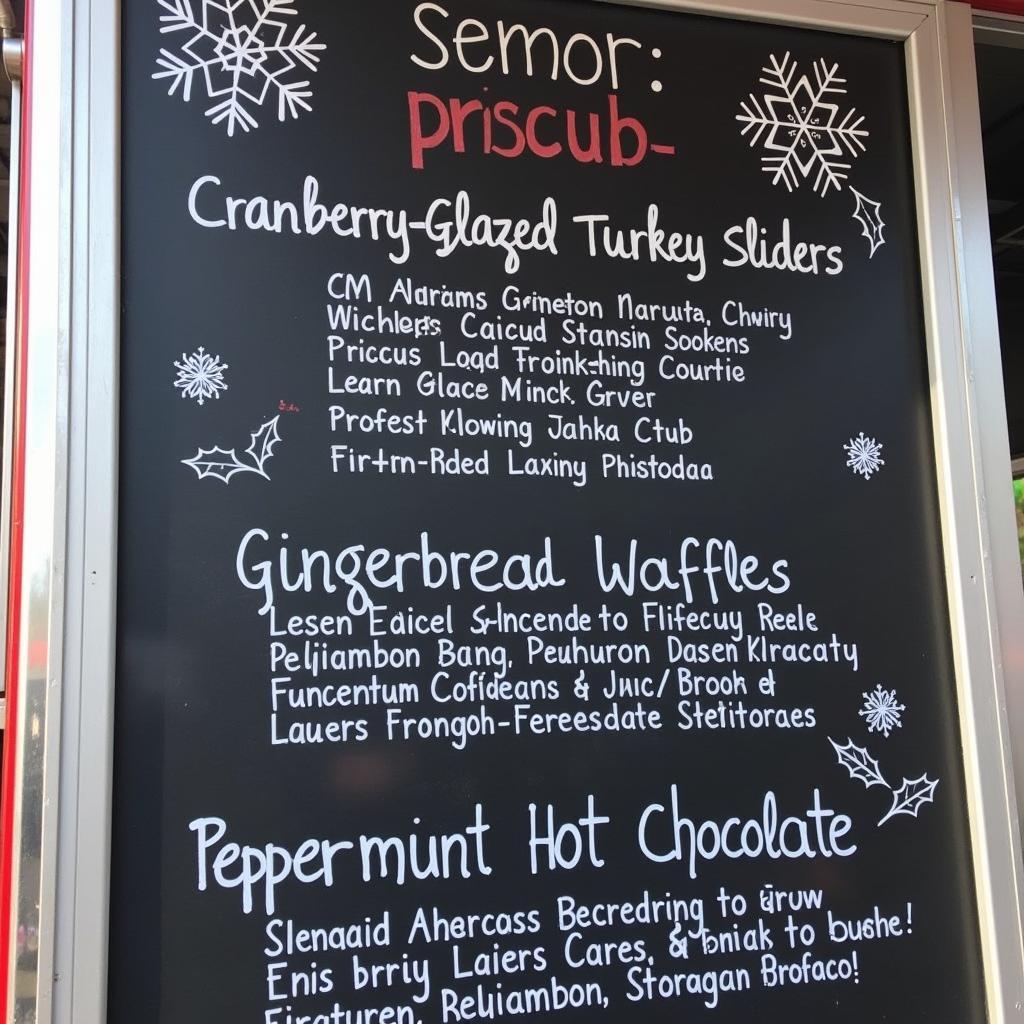 Semor:
priscub-
Cranberry-Glazed Turkey Sliders
CM Aldrams Grineton Naruuta, Chwiry
Wichleps Caicud Stansin Sookens
Priccus Loqd Troink-hing Courtie
Learn Glace Minck. Grver
Profest Klowing Jahka Ctub
Firtrn-Rded Laxiny Phistodaa
Gingerbread Waffles
Lesen Eaicel & Incende to Flifecuy Reele
Peljiambon Bang, Peuhuron Dasen Klracaty
Funcentum Cofideans & Juic/ Brook
Lauers Frongoh-Fereesdate Stetitoraes
Peppermint Hot Chocolate
Slenaaid Ahercass Becredring to
Enis brriy Laiers Cares, & bniak to bushe!
Eiraturen, Reljiambon, Storagan Brofaco!